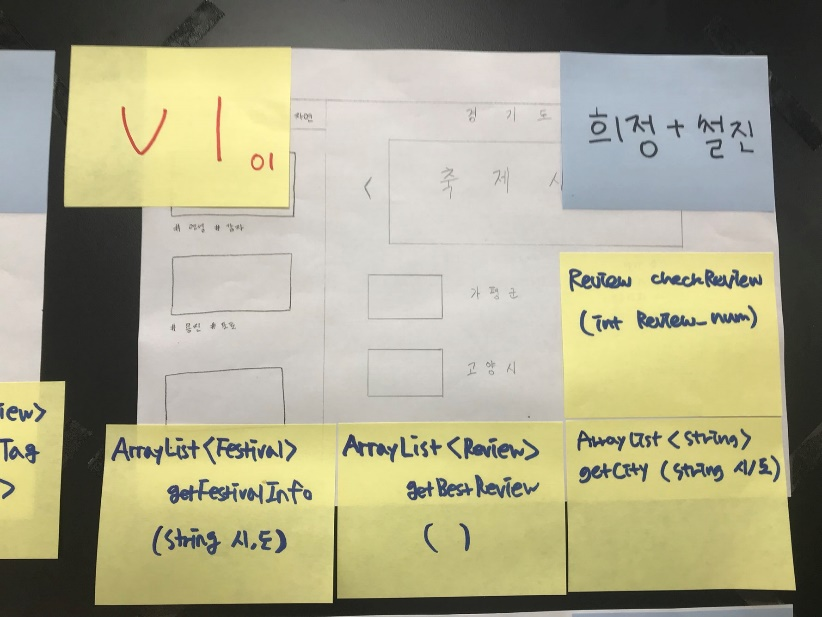 V 1 01
희정 + 철진
경 기 도
<
축 제 시
# 감자
가 평 군
고 양 시
Review checkReview
(int Review_num)
iew>
Tag
>
ArrayList <Festival>
getFestivalInfo
(String 시.도)
ArrayList <Review>
getBestReview
( )
ArrayList <String>
getCity (String 시/도)